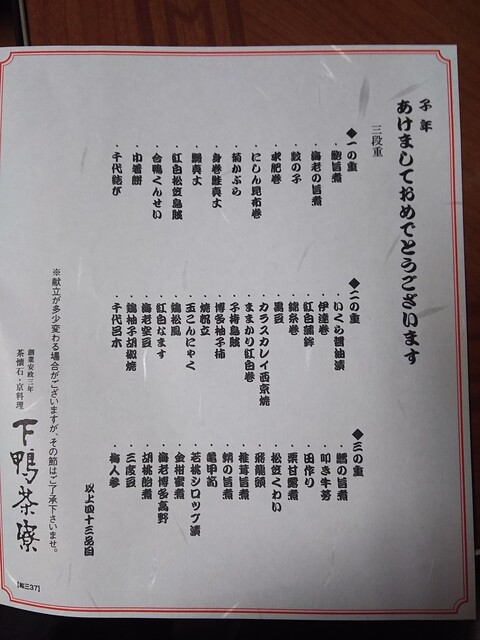 子年
あけましておめでとうございます
三段重
◆一の重
・鮑旨煮
・海老の旨煮
・数の子
・求肥巻
・にしん昆布巻
・菊かぶら
・身巻鮭真丈
・鰻真丈
・紅白松笠烏賊
・合鴨くんせい
・巾着餅
・千代結び
◆二の重
・いくら醤油漬
・伊達巻
・紅白蒲鉾
・錦糸巻
・黒豆
・カラスカレイ西京焼
・ままかり紅白巻
・子持烏賊
・博多柚子柿
・焼湯葉
・玉こんにゃく
・鶏松風
・紅白なます
・海老空豆
・鶏柚子胡椒焼
・千代呂木
◆三の重
・鱈の旨煮
・叩き牛蒡
・田作り
・栗甘露煮
・松笠くわい
・飛龍頭
・椎茸旨煮
・蛸の旨煮
・亀甲筍
・若桃シロップ漬
・金柑蜜煮
・海老博多高野
・胡桃飴煮
・三度豆
・梅人参
以上四十三品目
※献立が多少変わる場合がございますが、その節はご了承下さいませ。
創業安政三年
茶懐石・京料理
下鴨茶寮
【和三37】